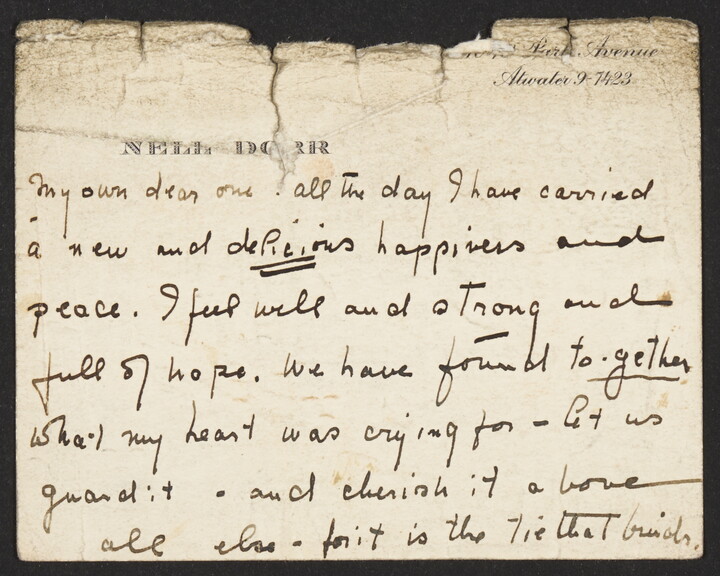 Park Avenue
Atwater 9-7423
NELL DORR
My own dear one. all the day I have carried
a new and delicious happiness and
peace. I feel well and strong and
full of hope. We have found to-gether
what my heart was crying for - let us
guard it - and cherish it above
all else - for it is the tie that binds.